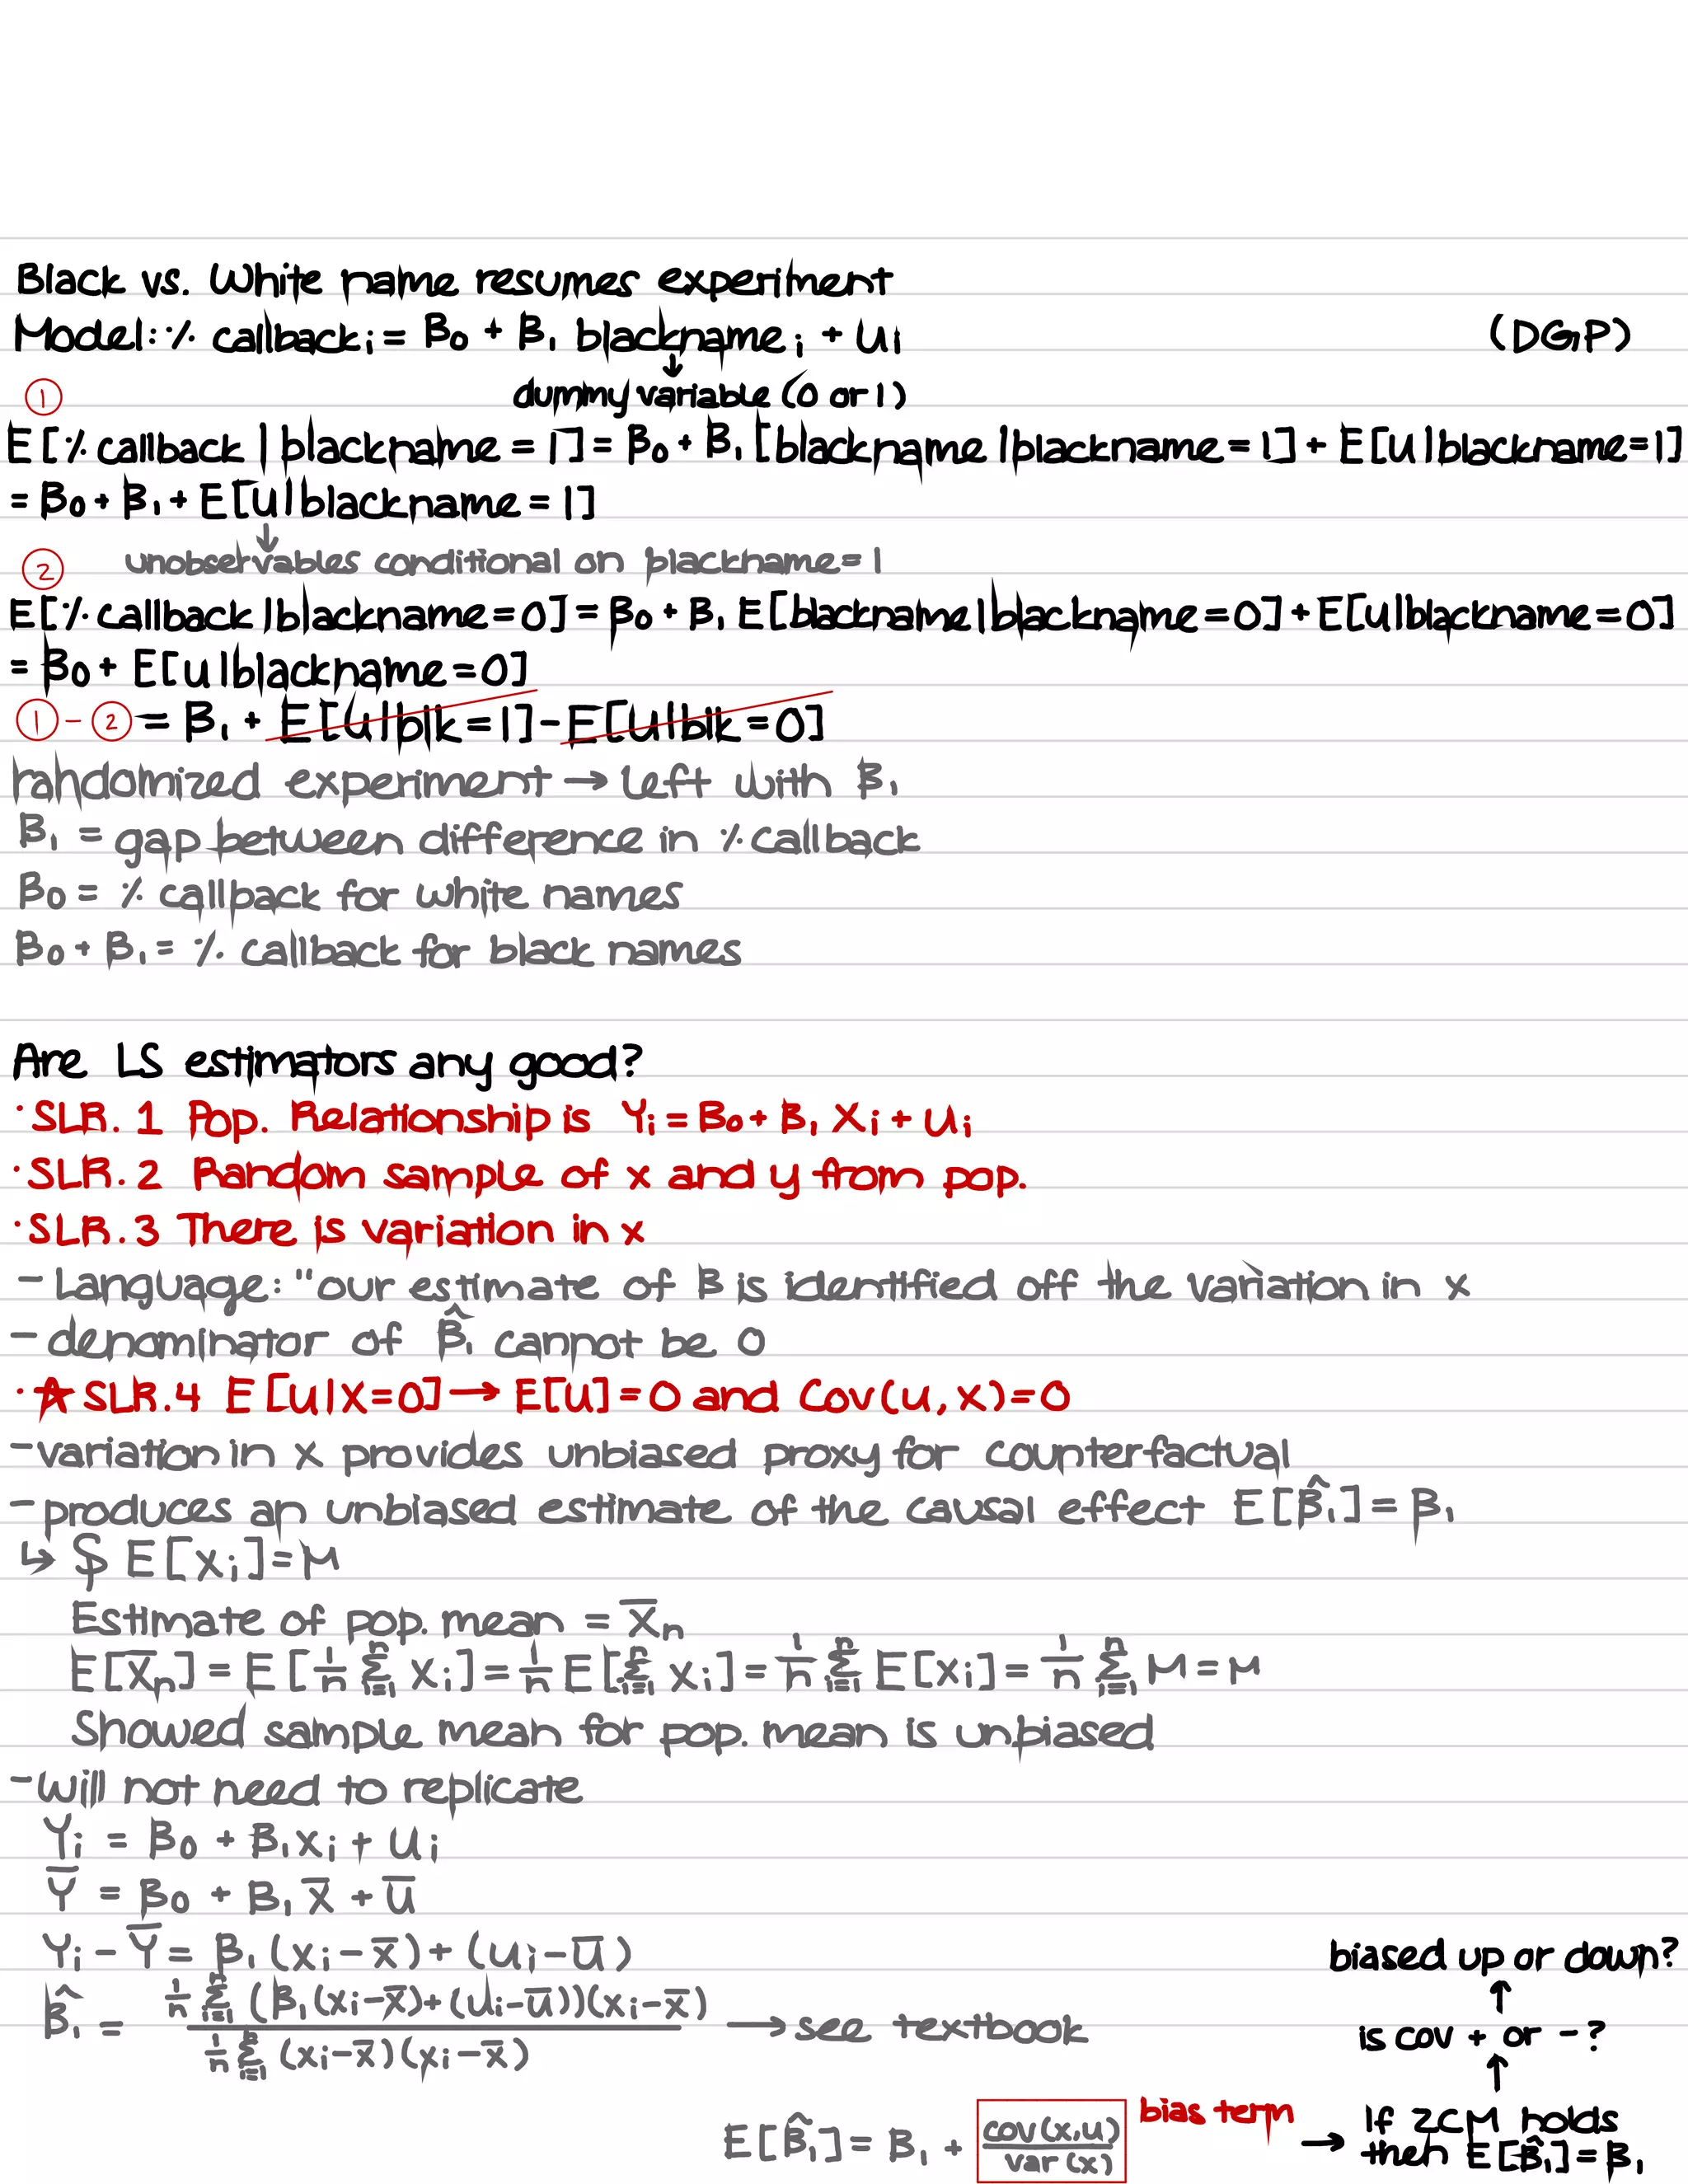 Black vs. White name resumes experiment
Model: % callback_i = B₀ + B₁ blackname_i + u_i (DGP)
↓
① dummy variable (0 or 1)
E[% callback | blackname = 1] = B₀ + B₁ [blackname | blackname = 1] + E[u | blackname = 1]
= B₀ + B₁ + E[u | blackname = 1]
↓
② unobservables conditional on blackname = 1
E[% callback | blackname = 0] = B₀ + B₁ E[blackname | blackname = 0] + E[u | blackname = 0]
= B₀ + E[u | blackname = 0]
① - ② = B₁ + E[u | blk = 1] - E[u | blk = 0]
randomized experiment → left with B₁
B₁ = gap between difference in % callback
B₀ = % callback for white names
B₀ + B₁ = % callback for black names
Are LS estimators any good?
· SLR. 1 Pop. Relationship is Y_i = B₀ + B₁ X_i + u_i
· SLR. 2 Random sample of x and y from pop.
· SLR. 3 There is variation in x
- Language: "our estimate of B is identified off the variation in x
- denominator of B̂₁ cannot be 0
· ★ SLR.4 E[u|X=0] → E[u] = 0 and Cov(u, x) = 0
- variation in x provides unbiased proxy for counterfactual
- produces an unbiased estimate of the causal effect E[B̂₁] = B₁
↳ $ E[X_i] = M
Estimate of pop. mean = X̅_n
E[X̅_n] = E[1/n Σ_{i=1}^n X_i] = 1/n E[Σ_{i=1}^n X_i] = 1/n Σ_{i=1}^n E[X_i] = 1/n Σ_{i=1}^n M = M
Showed sample mean for pop. mean is unbiased
- will not need to replicate
Y_i = B₀ + B₁x_i + u_i
Y̅ = B₀ + B₁x̅ + u̅
Y_i - Y̅ = B₁(x_i - x̅) + (u_i - u̅)
B̂₁ = 1/n Σ_{i=1}^n (B₁(x_i - x̅) + (u_i - u̅))(x_i - x̅) / 1/n Σ_{i=1}^n (x_i - x̅)(x_i - x̅) → see textbook
biased up or down?
↑
is cov + or - ?
↑
E[B̂₁] = B₁ + cov(x,u) / var(x) bias term → If ZCM holds
then E[B̂₁] = B₁